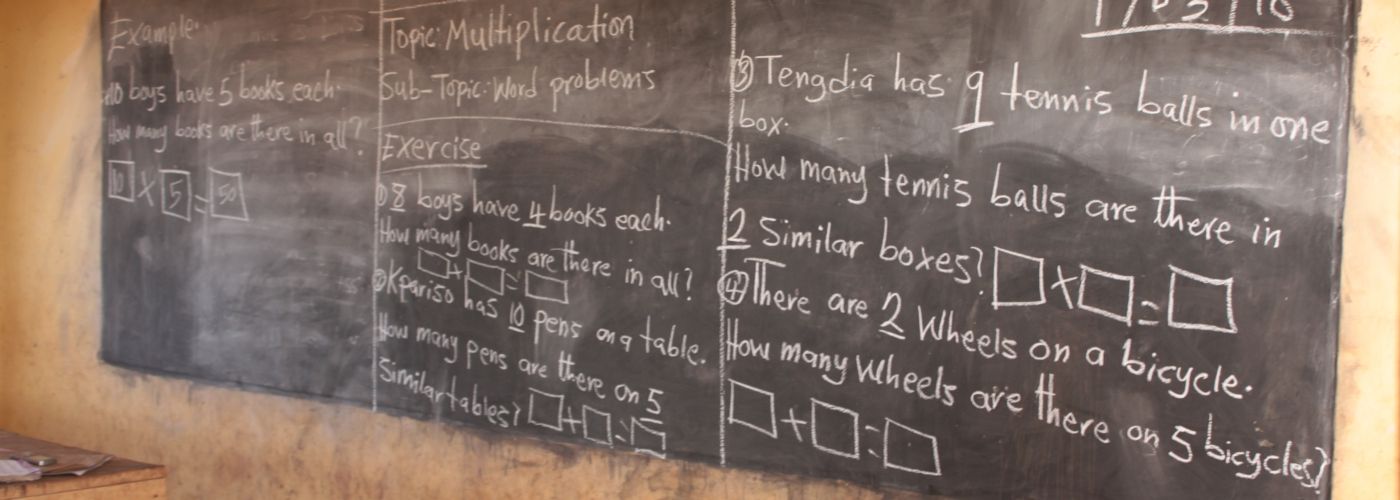 Example:
10 boys have 5 books each.
How many books are there in all?
10 × 5 = 50
Topic: Multiplication
Sub-Topic: Word problems
Exercise
① 8 boys have 4 books each.
How many books are there in all?
□ × □ = □
② Kpariso has 10 pens on a table.
How many pens are there on 5
Similar tables? □ + □ = □
③ Tengdia has 9 tennis balls in one
box.
How many tennis balls are there in
2 Similar boxes? □ × □ = □
④ There are 2 Wheels on a bicycle.
How many Wheels are there on 5 bicycles?
□ + □ = □